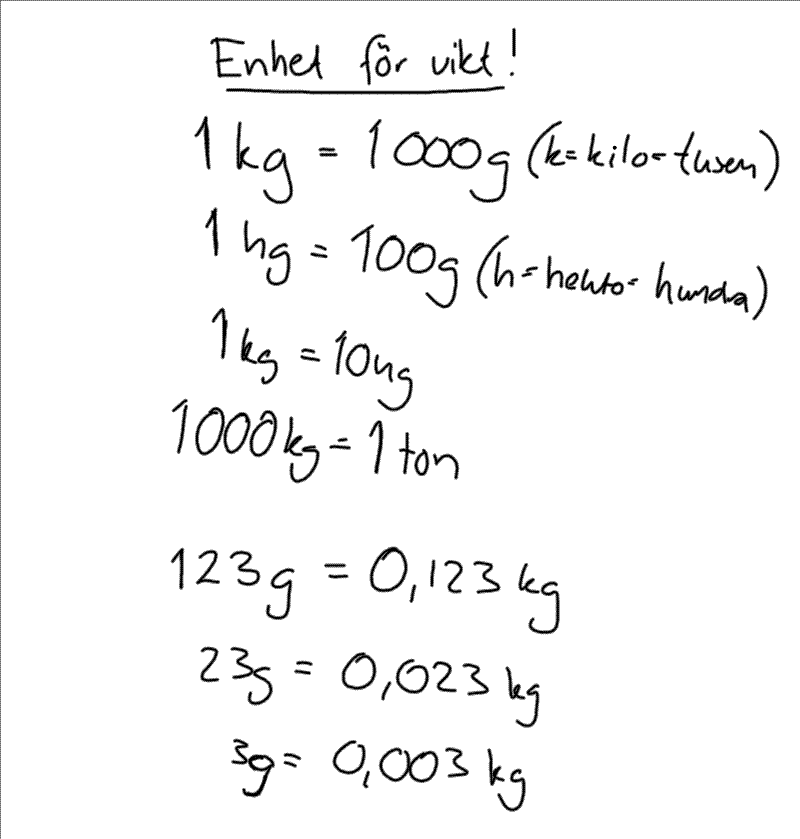 Enhet för vikt!
1 kg = 1 000g (k=kilo=tusen)
1 hg = 100g (h=hekto=hundra)
1 kg = 10 hg
1000 kg = 1 ton
123g = 0,123 kg
23g = 0,023 kg
3g = 0,003 kg